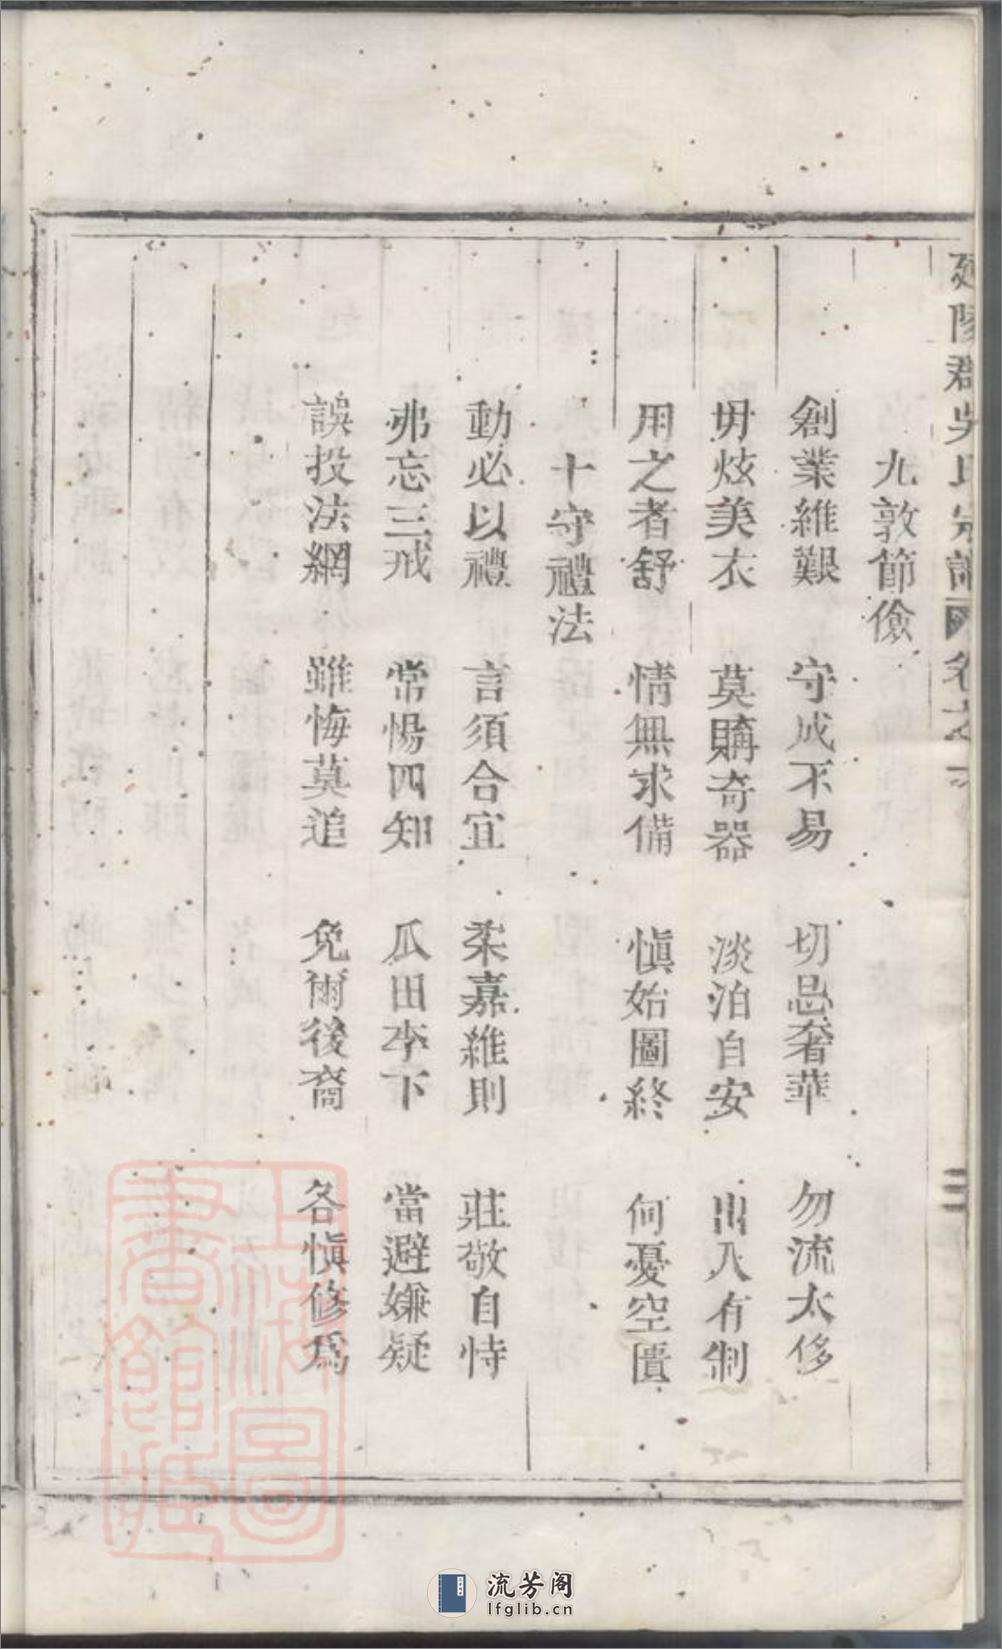 延陵郡吳氏宗譜 卷之一 三
九敦節儉
創業維艱 守成不易 切忌奢華 勿流太侈
毋炫美衣 莫購奇器 淡泊自安 出入有制
用之者舒 情無求備 愼始圖終 何憂空匱
十守禮法
動必以禮 言須合宜 柔嘉維則 莊敬自恃
弗忘三戒 常惕四知 瓜田李下 當避嫌疑
誤投法網 雖悔莫追 免爾後裔 各愼修爲
上海圖書館藏
流芳阁
lfglib.cn